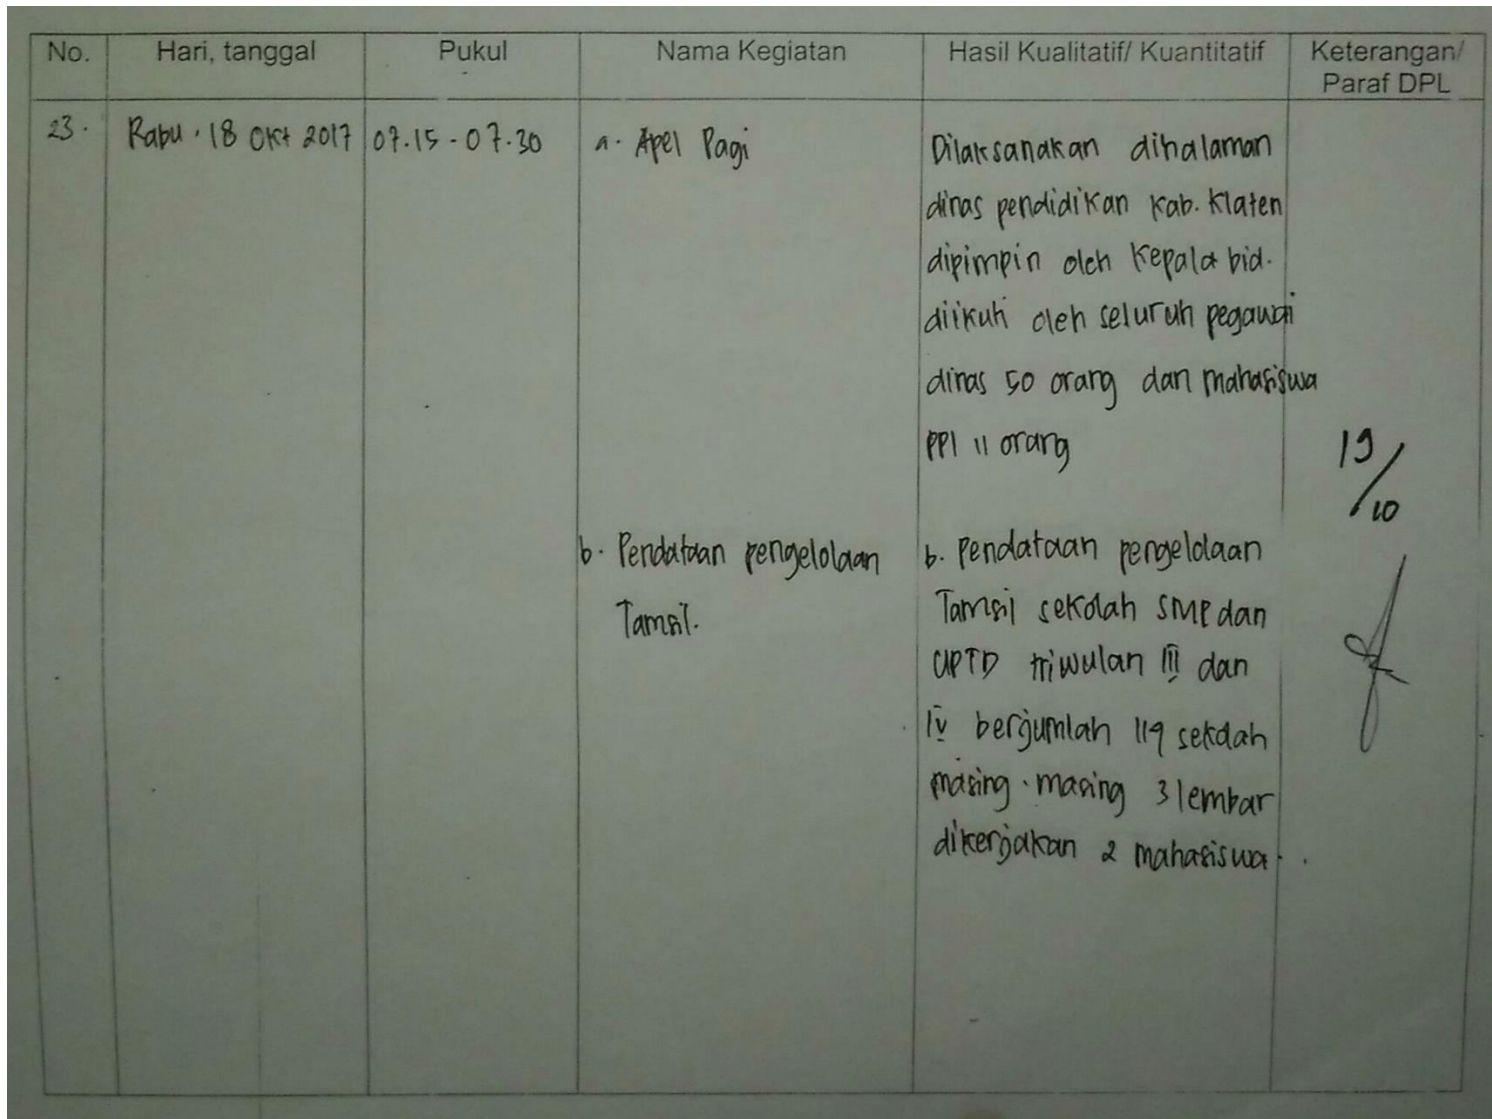 No. Hari, tanggal Pukul Nama Kegiatan Hasil Kualitatif/ Kuantitatif Keterangan/
Paraf DPL
23. Rabu, 18 Okt 2017 07.15 - 07.30 a. Apel Pagi Dilaksanakan dihalaman
dinas pendidikan Kab. Klaten
dipimpin oleh Kepala bid.
diikuti oleh seluruh pegawai
dinas 50 orang dan mahasiswa
PPl 11 orang
19/10
b. Pendataan pengelolaan b. Pendataan pengelolaan
Tamsil. Tamsil sekolah SMP dan
UPTD triwulan III dan
IV berjumlah 119 sekolah
masing-masing 3 lembar
dikerjakan 2 mahasiswa.